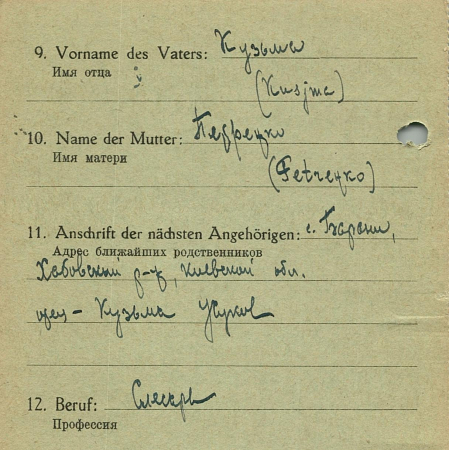 9. Vorname des Vaters: Кузьма
Имя отца
(Kusjma)
10. Name der Mutter: Петренко
Имя матери
(Petrenko)
11. Anschrift der nächsten Angehörigen: с. Барани,
Адрес ближайших родственников
р-н, Киевской обл.
отец – Кузьма
12. Beruf: Слесарь
Профессия